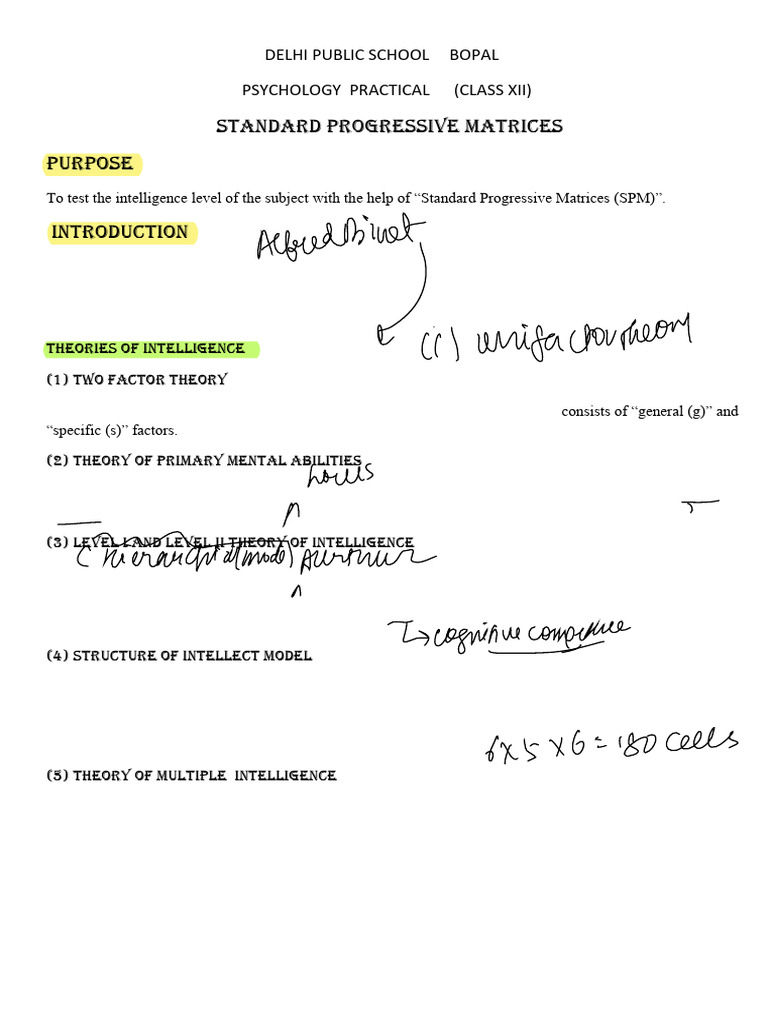 DELHI PUBLIC SCHOOL BOPAL
PSYCHOLOGY PRACTICAL (CLASS XII)
STANDARD PROGRESSIVE MATRICES
PURPOSE
To test the intelligence level of the subject with the help of “Standard Progressive Matrices (SPM)”.
INTRODUCTION
Alfred Binet
(i) unifactor theory
THEORIES OF INTELLIGENCE
(1) TWO FACTOR THEORY
consists of “general (g)” and
“specific (s)” factors.
(2) THEORY OF PRIMARY MENTAL ABILITIES
(3) LEVEL I AND LEVEL II THEORY OF INTELLIGENCE
(hierarchical model)
I→cognitive competence
(4) STRUCTURE OF INTELLECT MODEL
6x5x6=180 cells
(5) THEORY OF MULTIPLE INTELLIGENCE